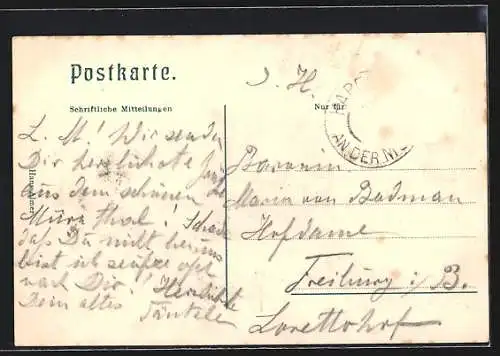 Postkarte.
Schriftliche Mitteilungen
Nur für
I. H.
HAPP
AN DER NI
L. M! Wir senden
Dir herzlichste
aus dem schönen
Murgthal! Schade
daß Du nicht bei uns
bist ich seufze oft
nach Dir! Herzlichst
Dein altes
Tantele
Baronin
Maria von Bodman
Hofdame
Freiburg i/B.
Lorettohof